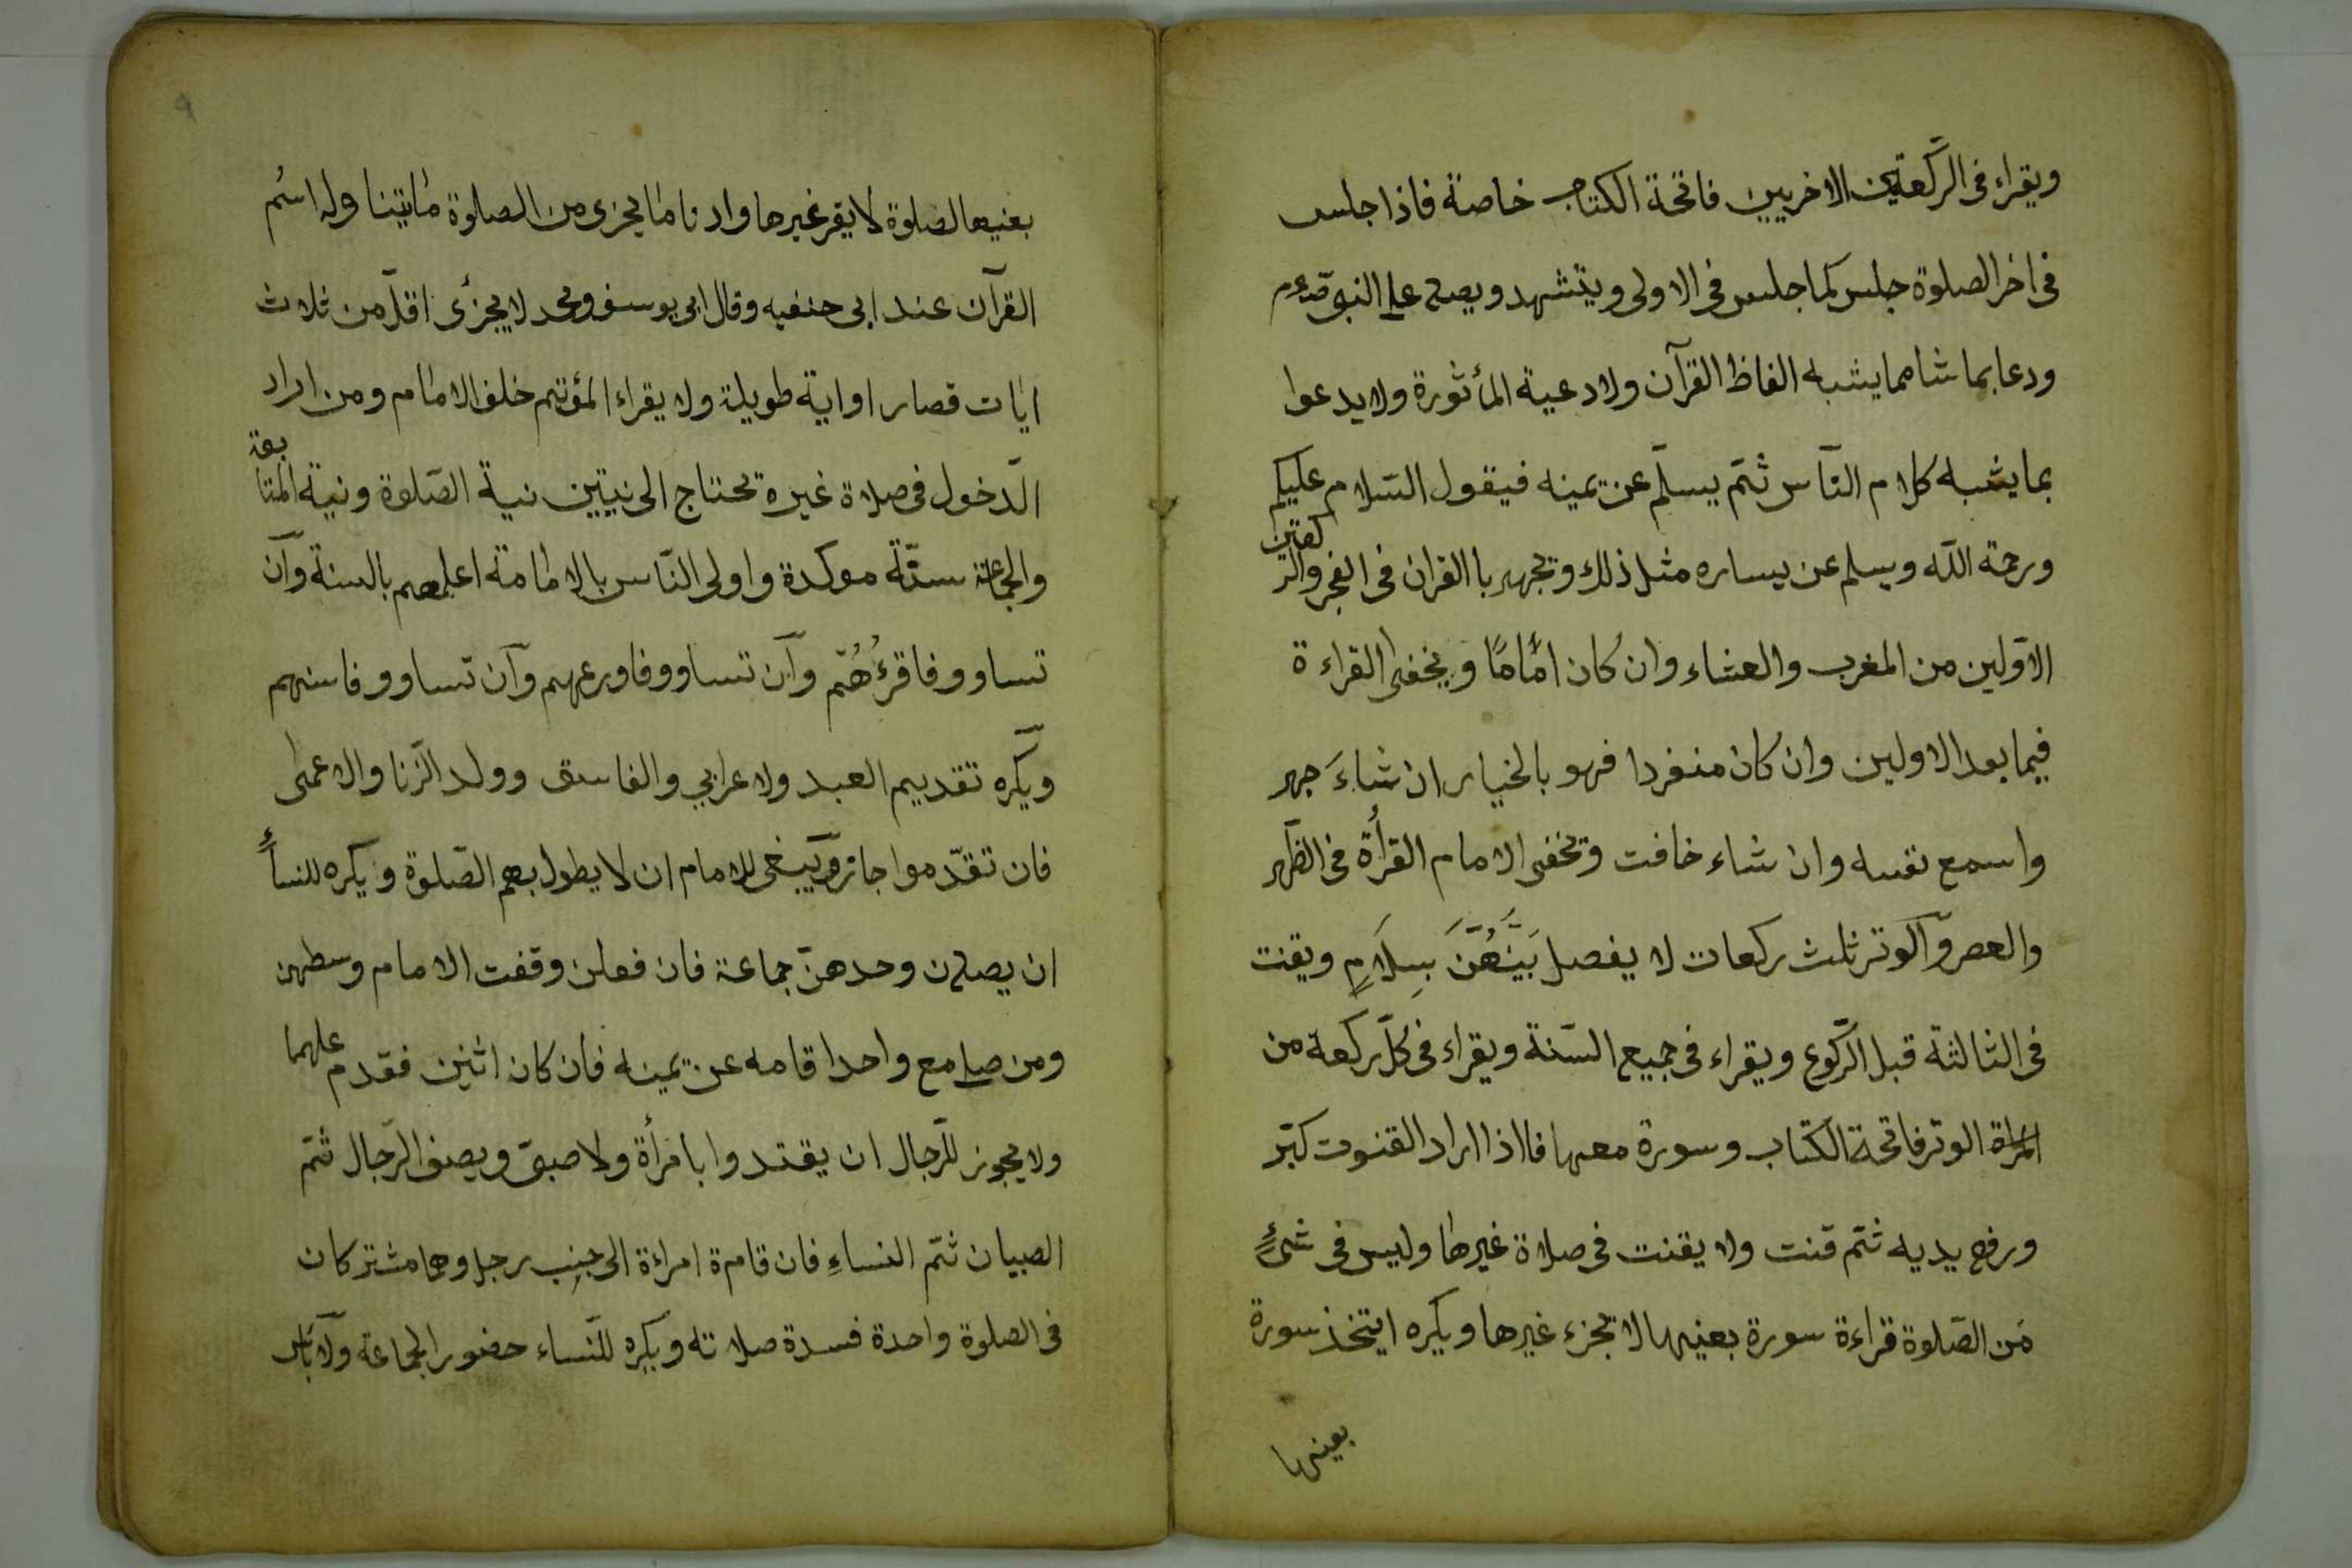 ويقراء فى الركعتين الاخريين فاتحة الكتاب خاصة فاذا جلس
فى اخر الصلوة جلس كما جلس فى الاولى ويتشهد ويصلى على النبى صلعم
ودعا بما شا مما يشبه الفاظ القرآن ولادعية المأثورة ولا يدعوا
بما يشبه كلام النّاس ثمّ يسلّم عن يمينه فيقول السّلام عليكم
ورحمة الله ويسلم عن يساره مثل ذلك ويجهر باالقران فى الفجر والركعتين
الاوّلين من المغرب والعشاء وان كان امامًا ويخفى القراءة
فيما بعد الاولين وان كان منفردا فهو بالخيار ان شاءَ جهر
واسمع نفسه وان شاء خافت ويخفى الامام القرأة فى الظّهر
والعصر والوتر ثلث ركعات لا يفصل بَيْنَهُنَّ بِسِلَامٍ ويقنت
فى الثالثة قبل الرّكوع ويقراء فى جميع السّنة ويقراء فى كلّ ركعة من
الوتر فاتحة الكتاب وسورة معها فااذا اراد القنوت كبّر
ورفع يديه ثمّ قنت ولا يقنت فى صلاة غيرها وليس فى شئٍ
من الصّلوة قراءة سورة بعنيها لا تجزء غيرها ويكره ايتخذ سورة
بعينها
9
بعنيها لصلوة لا يقر غيرها وادنا ما يجزى من الصلوة ماتينا وله اسُم
القرآن عند ابى حنفيه وقال ابى يوسف ومحمد لا يجزأى اقلّ من ثلاث
ايات قصار او اية طويلة ولا يقراء المؤتم خلف الامام ومن اراد
الّدخول فى صلاة غيره يحتاج الى نيتين نية الصّلوة ونية المتابعة
والجماعة سنّة موكدة واولى النّاس بالامامة اعلمهم بالسنة وآن
تساووفا قرءُهُمّ وآن تساووفاورعهم وآن تساووفاسنهم
ويكره تقديم العبد ولاعرابي والفاسق وولد الزّنا والاعمى
فان تقدّموا جاز وينبغى للامام ان لا يطول بهم الصّلوة ويكره للنسأٍ
ان يصلين وحدهنّ جماعة فان فعلن وقفت الامام وسطهن
ومن صلى مع واحد اقامه عن يمينه فان كان اثنين فقدم عليهما
ولا يجوز للّرجال ان يقتدوا بامرأة ولا صبىّ ويصف الرّجال ثمّ
الصبيان ثمّ النساءِ فان قامة امراءة الى جنب رجل وهما مشتركان
فى الصلوة واحدة فسدة صلاته ويكره للنّساء حضور الجماعة ولا بأس